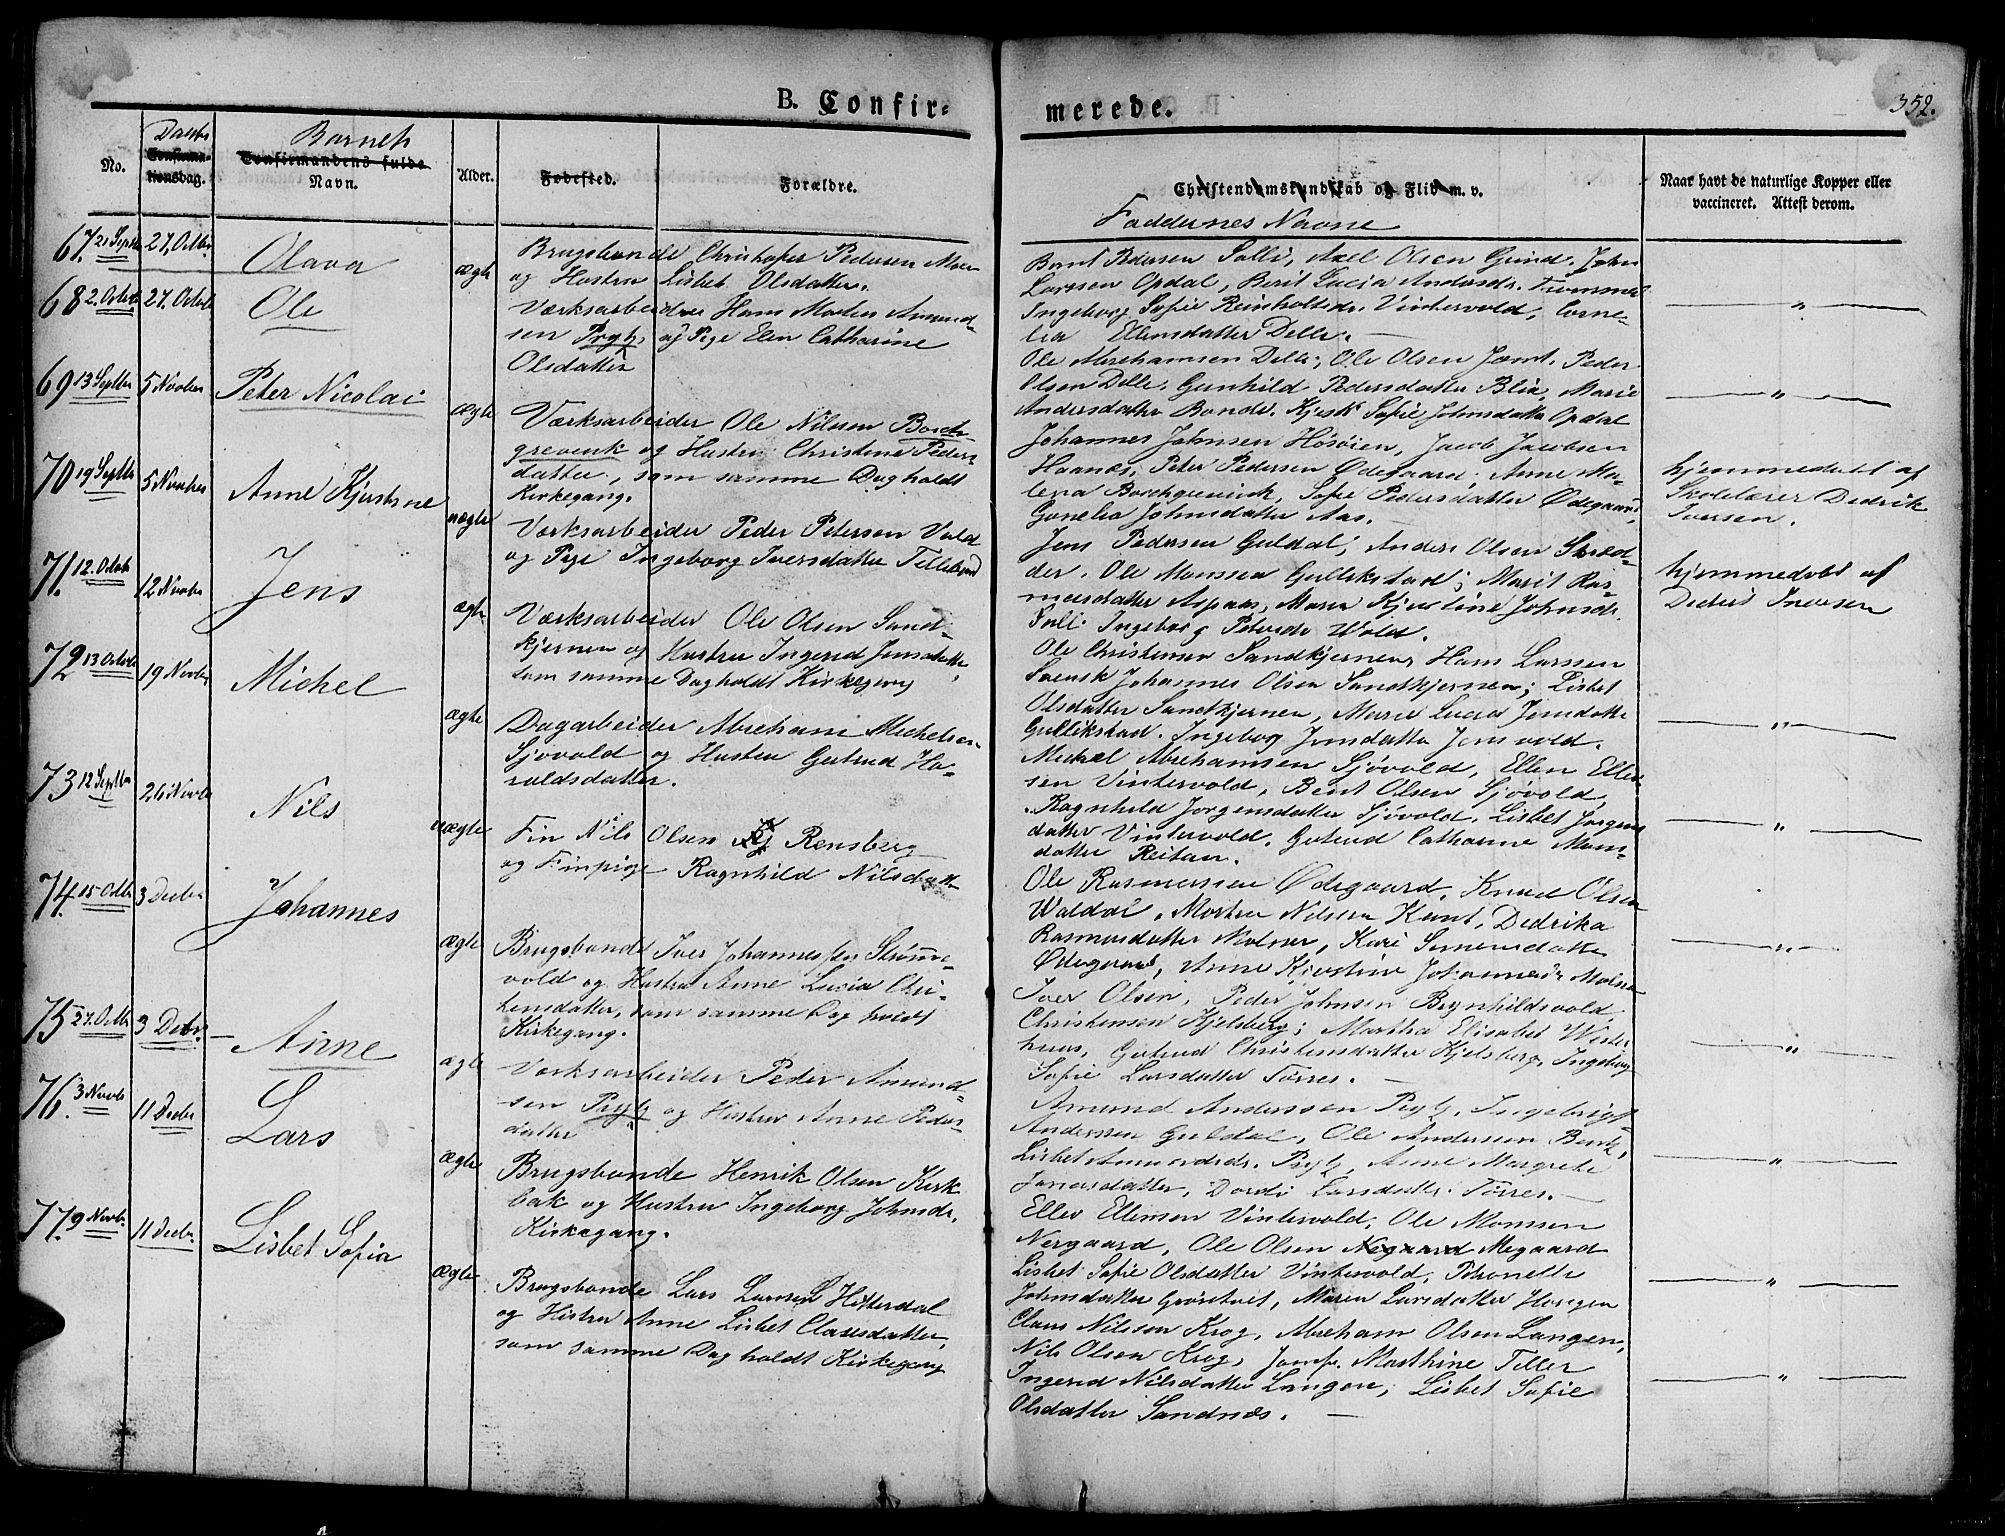 B. Confir-
merede.
352.
No.
Daabs
Confirma-
tionsdag.
Barnets
Confirmandens fulde
Navn.
Alder.
Fødested.
Forældre.
Christendomskundskab og Flid m. v.
Faddernes Navne
Naar havt de naturlige Kopper eller
vaccineret. Attest derom.
67. 21 Septbr 27. Octbr. Olava ægte
Brugsbonde Christopher Pedersen Moen
og Hustru Lisbet Olsdatter.
Bernt Pedersen Solli, Axel Olsen Grind, John
Larssen Opdal, Berit Lucia Andersdr.
68 2. Octob 27. Octob Ole
Værksarbeider Hans Morten Amund-
sen Prytz, og Pige Elen Catharine
Olsdatter
Ingeborg Sofie Reinholtsdr. Vintervold, Corne-
lia Ellensdatter Delle. —
Ole Abrehamsen Delle, Ole Olsen Jæmt. Peder
Olsen Delle. Gunhild Pedersdatter Blia, Marie
Andersdatter Bonde. Sofie Johnsdatter Opdal
69 13 Septbr 5 Novber Peter Nicolai ægte
Værksarbeider Ole Nilssen Borch-
grevenk og Hustru Christine Peders-
datter, som samme Dag holdt
Kirkegang.
Johannes Johnsen Hosøien, Jacob Jacobsen
Haanes, Peter Pedersen Ødegaard, Anne Ma-
lena Borchgrevink, Sofie Pedersdatter Ødegaard,
Gonelia Johnsdatter Aas. —
70 19 Septbr 5 Novber Anne Kjerstine uægte
Værksarbeider Peder Petersen Vold
og Pige Ingeborg Iversdatter
Jens Pedersen Guldal, Anders Olsen Skræd-
der. Ole Monssen Gullikstad; Marit Ras-
musdatter Aspaas, Maren Kjerstine Johnsdr.
Solli Ingeborg Petersdr Wold.
hjemmedøbt af
Skolelærer Dedrik
Iversen.
71. 12. Octob 12 Novbr Jens ægte
Værksarbeider Ole Olsen Sand-
kjernen og Hustru Ingerid Jensdatter,
som samme Dag holdt Kirkegang
Ole Christensen Sandkjernen, Hans Larssen
Svensk Johannes Olsen Sandkjernen; Lisbet
Olsdatter Sandkjernen, Marie Lucia Jonsdatter
Gullikstad. Ingeborg Jonsdatter Jensvold.
hjemmedøbt af
Dedrik Iversen
72 13 Octob 19 Novbr Michel ægte
Dagarbeider Abreham Michelsen
Sjøvold og Hustru Gutrud Ha-
raldsdatter.
Mickel Abrehamsen Sjøvold, Ellen Ellev-
sen Vintervold, Bent Olsen Sjøvold,
Ragnhild Jørgensdatter Sjøvold. Lisbet Jørgens
datter Vintervold. Gutrud Catharine Mons-
datter Reitan.
73 12 Septbr 26 Novbr Nils uægte
Fin Nils Olsen Rensberg
og Finpige Ragnhild Nilsdatter
Ole Rasmussen Ødegaard, Knud Olsen
Waldal, Morten Nilssen Kant, Dedrika
Rasmusdatter Molner, Kari Simensdatter
Ødegaard, Anne Kjerstine Johannesdr Molner
74. 15 Octbr 3 Decbr Johannes ægte
Brugsbonde Iver Johannessen Strømme-
vold og Hustru Anne Lucia Chri-
stensdatter, som samme Dag holdt
Kirkegang.
Iver Olsen, Peder Johnsen Brynhildsvold
Christensen Kjelsberg; Martha Elisabet Wester
huus, Gutrud Christensdatter Kjelsberg, Ingeborg
Sofie Larsdatter Tørres. —
75 27. Octbr 3 Decbr. Anne ægte
Værksarbeider Peder Amund-
sen Prytz og Hustru Anne Peders-
datter
Amund Anderssen Prytz, Ingebrigt
Anderssen Guldal, Ole Anderssen Berk,
Lisbet Amundsdr. Prytz, Anne Margrete
Jonasdatter, Dordi Larsdatter Tørres. —
76. 3 Novbr 11 Decbr Lars ægte
Brugsbonde Henrik Olsen Kirk
bak og Hustru Ingeborg Johnsdr.
Kirkegang.
Ellev Ellevsen Vintervold, Ole Monssen
Nergaard, Ole Olsen Negaard Megaard
Lisbet Sofie Olsdatter Vintervold, Petronelle
Johnsdatter Grøntvet, Maren Larsdatter Haugen
77. 9 Novbr. 11 Decbr. Lisbet Sofia ægte
Brugsbonde Lars Larssen Hitterdal
og Hustru Anne Lisbet Clausdatter,
som samme Dag holdt Kirkegang
Claus Nilssen Krog, Abreham Olsen Langen,
Nils Olsen Krog, Jomfr. Marthine Teller
Ingerid Nilsdatter Langen, Lisbet Sofie
Olsdatter Sandnæs. —